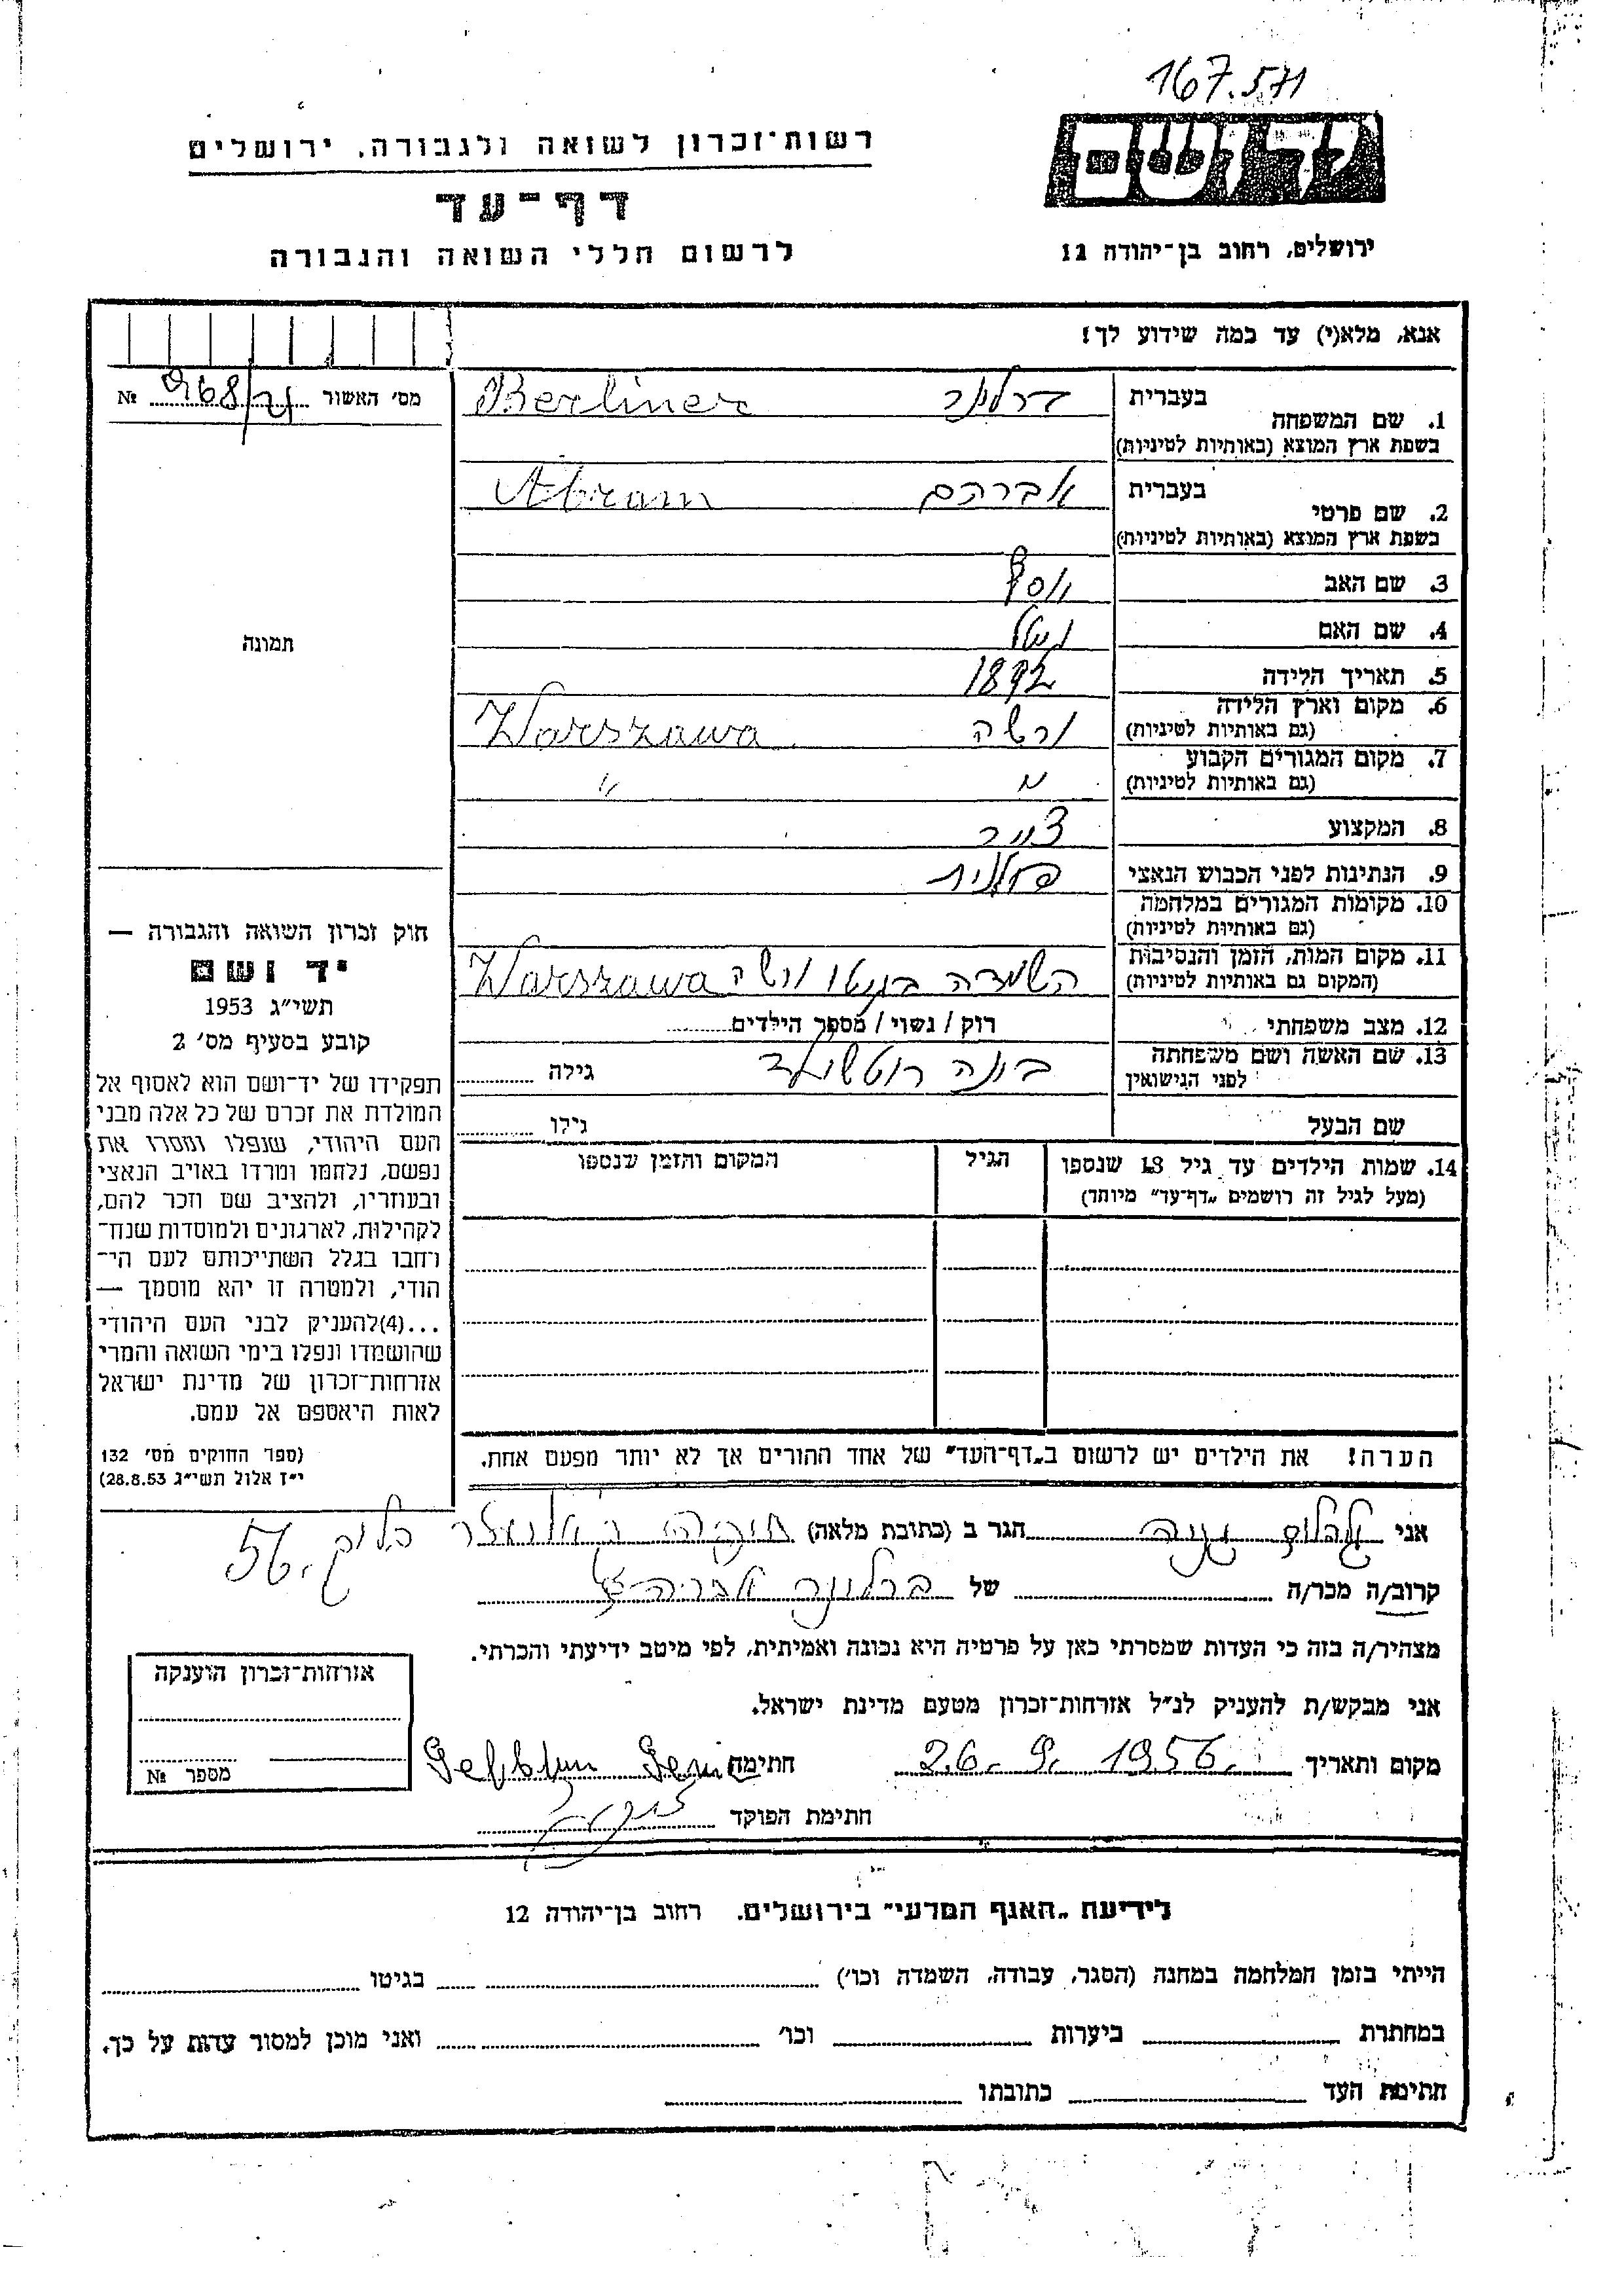 167.571
יד ושם
רשות-זכרון לשואה ולגבורה, ירושלים
דף-עד
לרשום חללי השואה והגבורה
ירושלים, רחוב בן-יהודה 12
אנא, מלא(י) עד כמה שידוע לך!
מס' האשור 968/21 №
בעברית ברלינר Berliner
1. שם המשפחה
בשפת ארץ המוצא (באותיות לטיניות)
בעברית אברהם Abram
2. שם פרטי
בשפת ארץ המוצא (באותיות לטיניות)
3. שם האב יוסף
4. שם האם
5. תאריך הלידה 1892
6. מקום וארץ הלידה ורשה Warszawa
(גם באותיות לטיניות)
7. מקום המגורים הקבוע " "
(גם באותיות לטיניות)
8. המקצוע צייר
9. הנתינות לפני הכבוש הנאצי פולנית
10. מקומות המגורים במלחמה
(גם באותיות לטיניות)
11. מקום המות, הזמן והנסיבות השמדה בגטו ורשה Warszawa
(המקום גם באותיות לטיניות)
12. מצב משפחתי רוק / נשוי / מספר הילדים
13. שם האשה ושם משפחתה רוטשילד גילה
לפני הנישואין
שם הבעל גילו
14. שמות הילדים עד גיל 18 שנספו הגיל המקום והזמן שנספו
(מעל לגיל זה רושמים "דף-עד" מיוחד)
הערה! את הילדים יש לרשום ב"דף-העד" של אחד ההורים אך לא יותר מפעם אחת.
תמונה
חוק זכרון השואה והגבורה —
יד ושם
תשי"ג 1953
קובע בסעיף מס' 2
תפקידו של יד-ושם הוא לאסוף אל
המולדת את זכרם של כל אלה מבני
העם היהודי, שנפלו ומסרו את
נפשם, נלחמו ומרדו באויב הנאצי
ובעוזריו, ולהציב שם וזכר להם,
לקהילות, לארגונים ולמוסדות שנח-
רחבו בגלל השתייכותם לעם הי-
הודי, ולמטרה זו יהא מוסמך —
...(4)להעניק לבני העם היהודי
שהושמדו ונפלו בימי השואה והמרי
אזרחות-זכרון של מדינת ישראל
לאות היאספם אל עמם.
(ספר החוקים מס' 132
י"ז אלול תשי"ג 28.8.53)
אני הגר ב (כתובת מלאה) חיפה 56
קרוב/ה מכר/ה של ברלינר אברהם
מצהיר/ה בזה כי העדות שמסרתי כאן על פרטיה היא נכונה ואמיתית, לפי מיטב ידיעתי והכרתי.
אני מבקש/ת להעניק לנ"ל אזרחות-זכרון מטעם מדינת ישראל.
מקום ותאריך 26. 9. 1956. חתימה
חתימת הפוקד
אזרחות-זכרון הוענקה
מספר №
לידיעת "האגף המדעי" בירושלים. רחוב בן-יהודה 12
הייתי בזמן המלחמה במחנה (הסגר, עבודה, השמדה וכו') בגיטו
במחתרת ביערות וכו' ואני מוכן למסור עדות על כך.
חתימת העד כתובתו